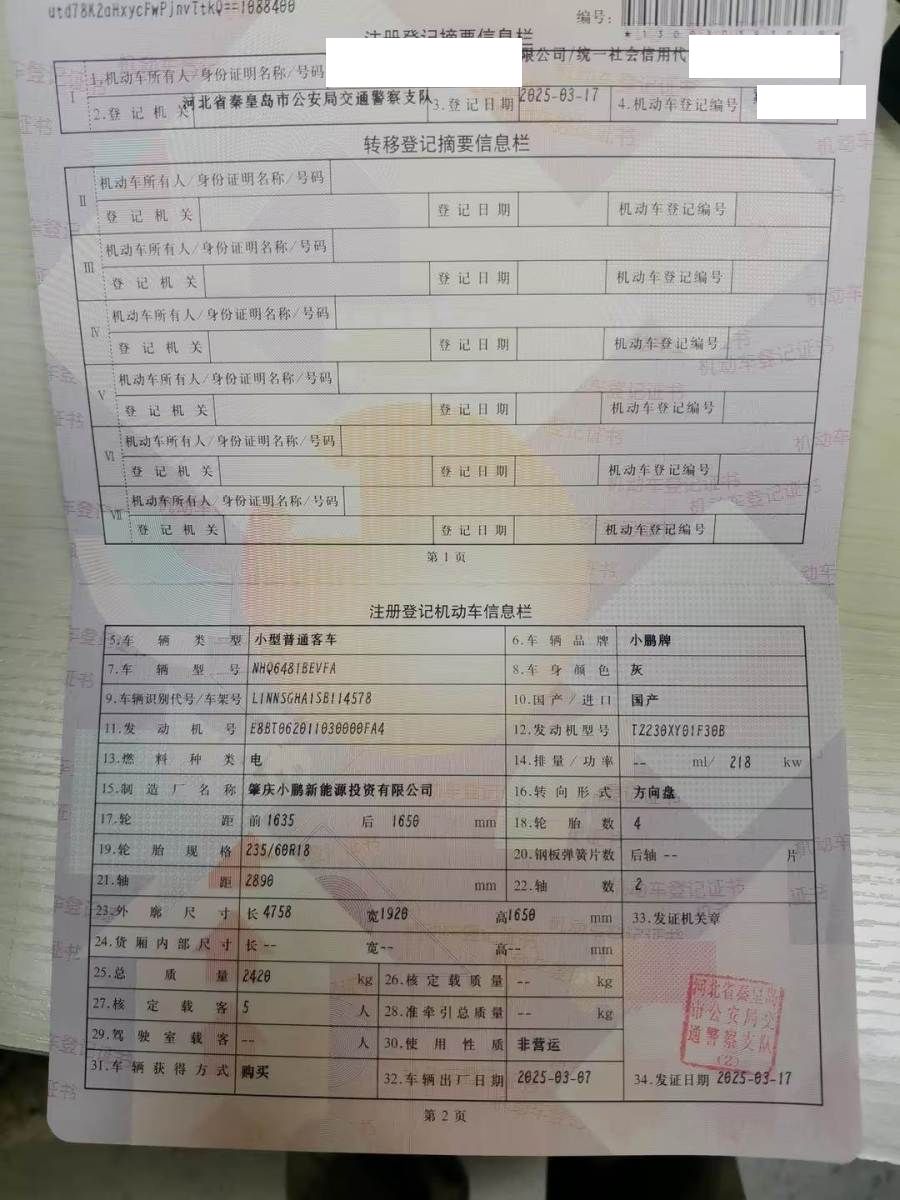 utd78K2aHxycFwPjnvTtkQ==1088400
编号:
注册登记摘要信息栏
I 1.机动车所有人/身份证明名称/号码 限公司/统一社会信用代
2.登记机关 河北省秦皇岛市公安局交通警察支队 3.登记日期 2025-03-17 4.机动车登记编号
转移登记摘要信息栏
II 机动车所有人/身份证明名称/号码
登记机关 登记日期 机动车登记编号
III 机动车所有人/身份证明名称/号码
登记机关 登记日期 机动车登记编号
IV 机动车所有人/身份证明名称/号码
登记机关 登记日期 机动车登记编号
V 机动车所有人/身份证明名称/号码
登记机关 登记日期 机动车登记编号
VI 机动车所有人/身份证明名称/号码
登记机关 登记日期 机动车登记编号
VII 机动车所有人/身份证明名称/号码
登记机关 登记日期 机动车登记编号
第1页
注册登记机动车信息栏
5.车辆类型 小型普通客车 6.车辆品牌 小鹏牌
7.车辆型号 NHQ6481BEVFA 8.车身颜色 灰
9.车辆识别代号/车架号 L1NNSGHA1SB114578 10.国产/进口 国产
11.发动机号 E8BT062011030000FA4 12.发动机型号 TZ230XY01F30B
13.燃料种类 电 14.排量/功率 -- ml/ 218 kw
15.制造厂名称 肇庆小鹏新能源投资有限公司 16.转向形式 方向盘
17.轮距 前 1635 后 1650 mm 18.轮胎数 4
19.轮胎规格 235/60R18 20.钢板弹簧片数 后轴 -- 片
21.轴距 2890 mm 22.轴数 2
23.外廓尺寸 长 4758 宽 1920 高 1650 mm 33.发证机关章
24.货厢内部尺寸 长 -- 宽 -- 高 -- mm
25.总质量 2420 kg 26.核定载质量 -- kg
27.核定载客 5 人 28.准牵引总质量 -- kg
29.驾驶室载客 -- 人 30.使用性质 非营运
31.车辆获得方式 购买 32.车辆出厂日期 2025-03-07 34.发证日期 2025-03-17
河北省秦皇岛
市公安局交
通警察支队
(2)
第2页